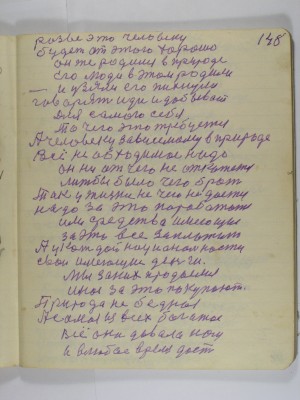 148
разве это человеку
будет от этого хорошо
он же родился в природе
его люди в этом родили
— и взяли его пихнули
говорят иди и добывай
для самого себя
То чего это требуется
А человеку зависимому в природе
Всё не обходимое надо
он ни от чего не откажется
лишбы было чего брать
Так у жизни не чего не даёться
надо за это поработать
или средства имеющие
за это все заплотать
А у каждой национальности
свои имеющие деньги.
Мы за них продаем
иные за это покупают.
Природа не бедная
А самая из всех богатая
Всё она давала могу
и в любое время даст